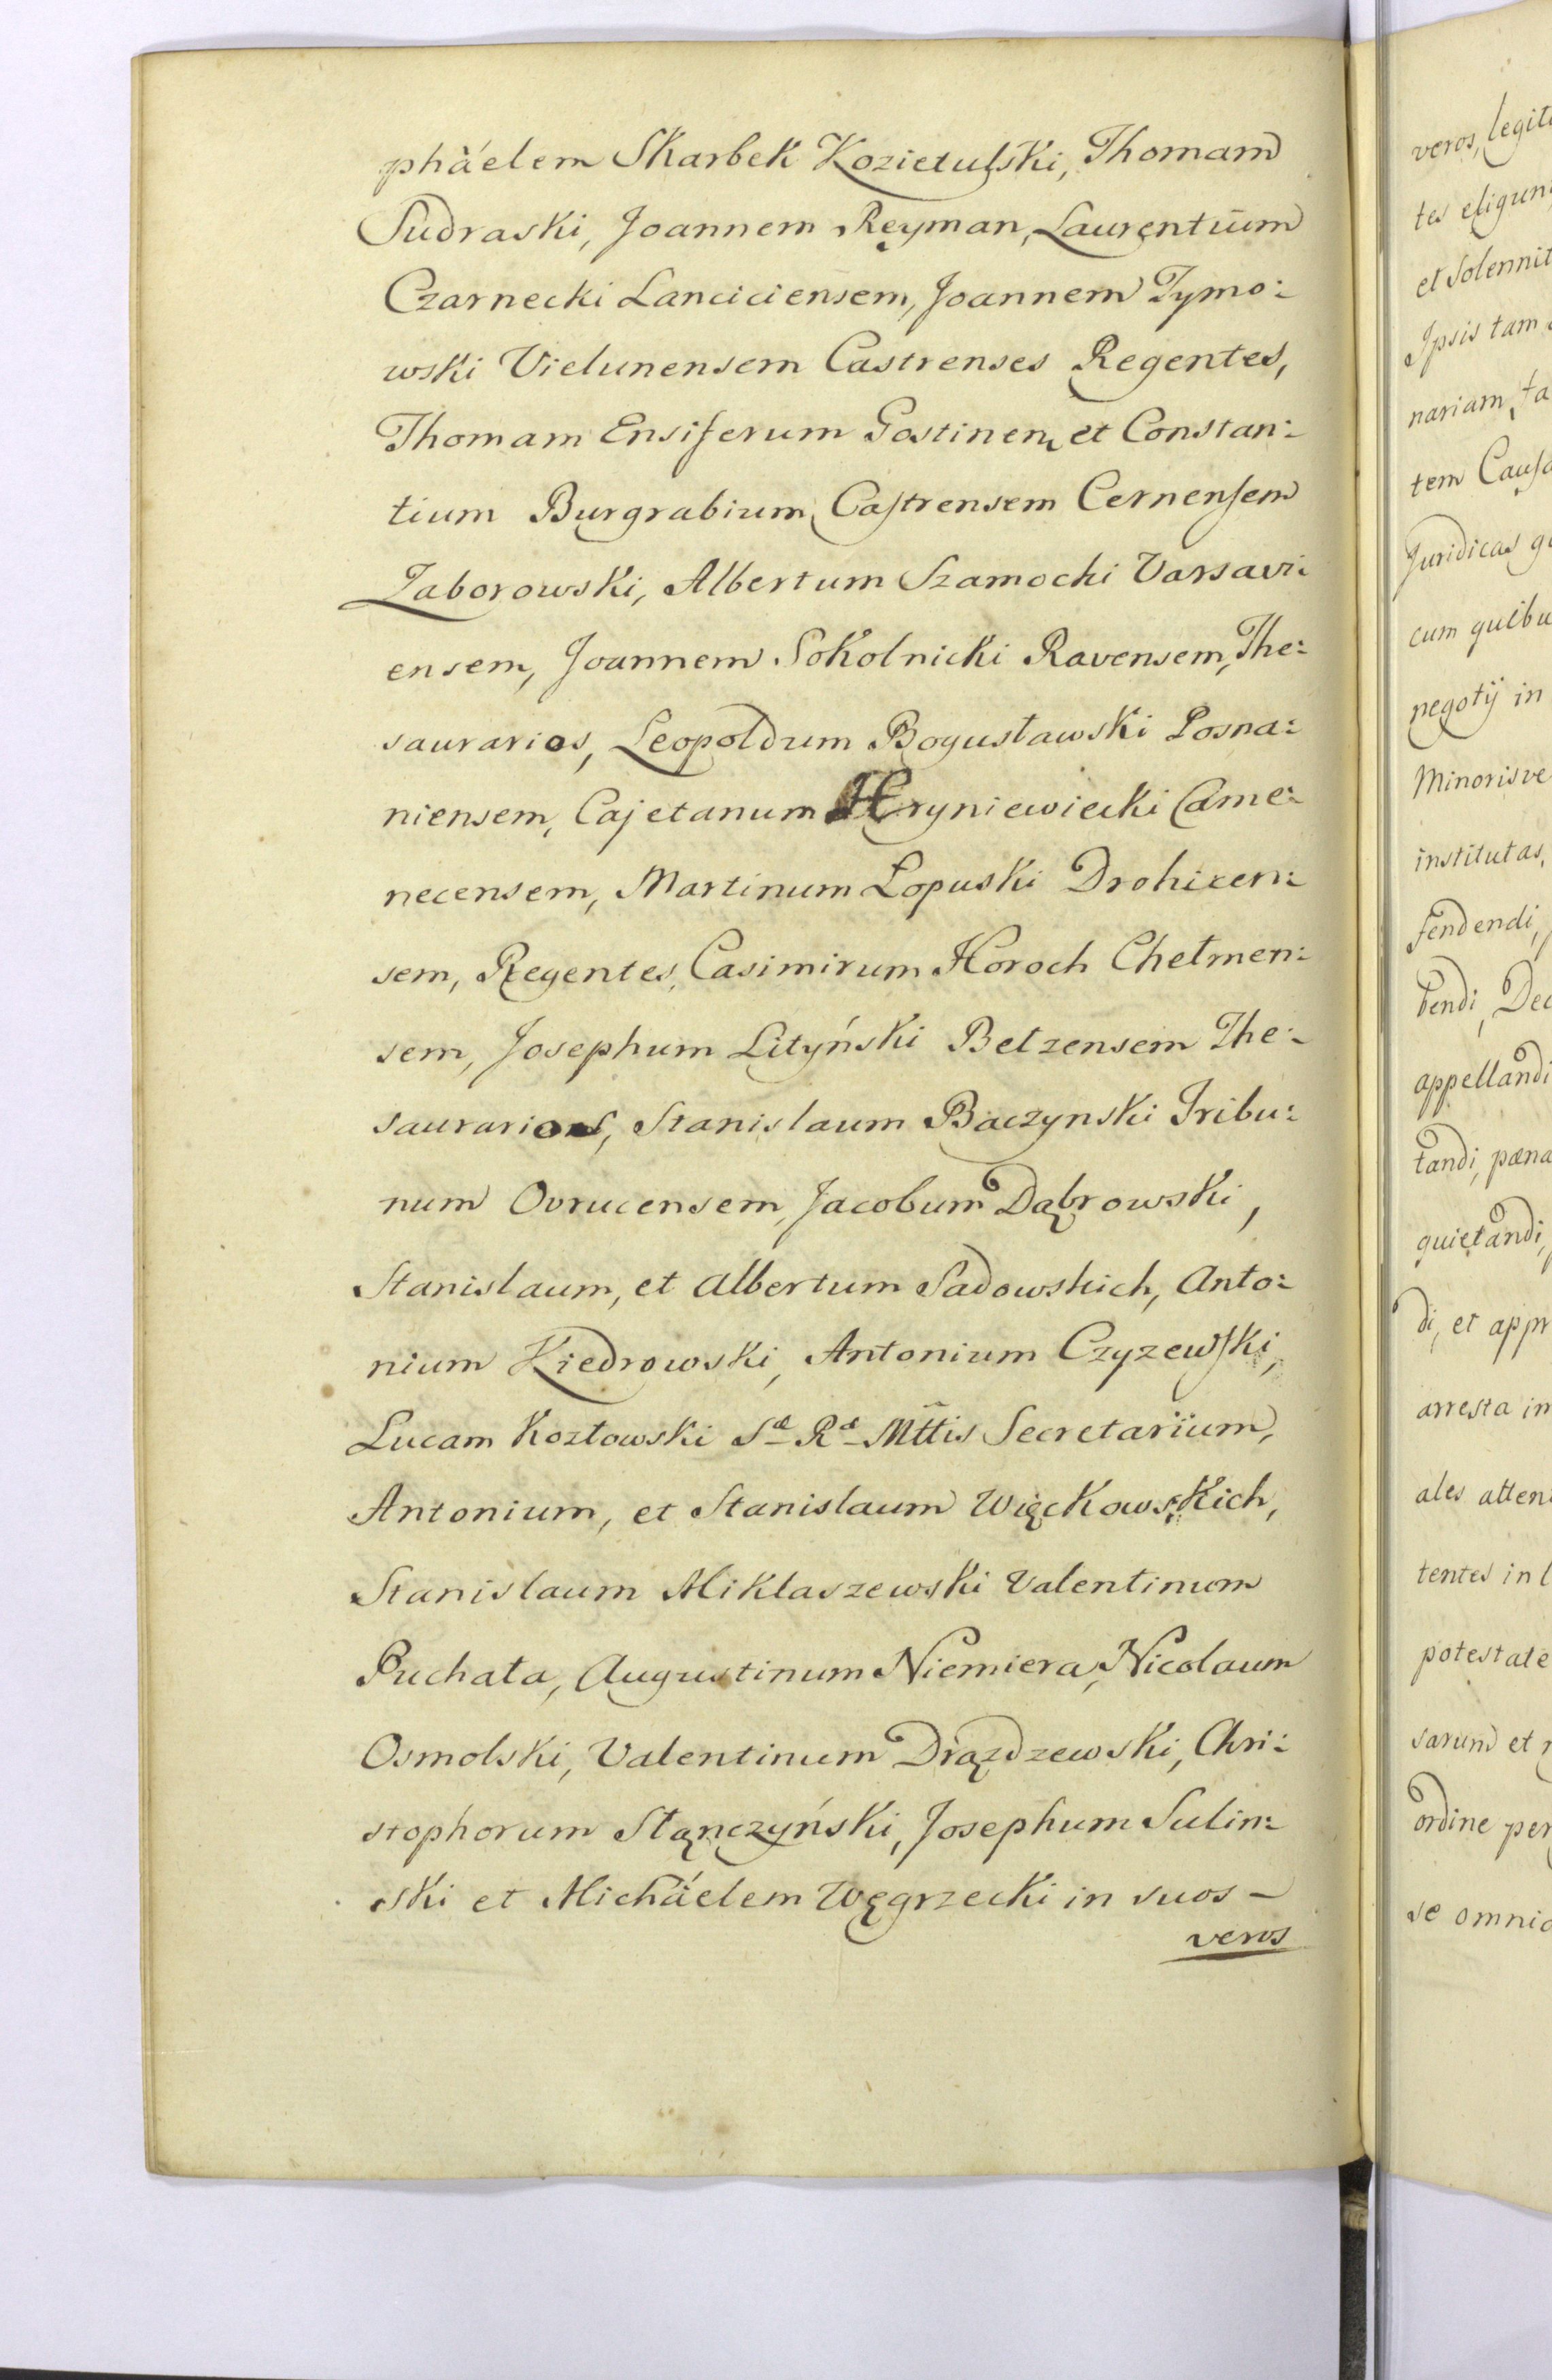 phäelem Skarbek Kozietulski, Thomam
Sudraski, Joannem Reyman, Laurentium
Czarnecki Lanciciensem, Joannem Tymo:
wski Vielunensem Castrenses Regentes,
Thomam Ensiferum Gostinen, et Constan:
tium Burgrabium Castrensem Cernensem
Zaborowski, Albertum Szamocki Varsavi:
ensem, Joannem Sokolnicki Ravensem, The:
saurarios, Leopoldum Bogusławski Posna:
niensem, Cajetanum Hryniewiecki Came:
necensem, Martinum Łopuski Drohicen:
sem, Regentes, Casimirum Horoch Chełmen:
sem, Josephum Lityński Bełzensem The:
saurarios, Stanislaum Baczynski Tribu:
num Ovrucensem, Jacobum Dąbrowski,
Stanislaum, et Albertum Sadowskich, Anto:
nium Kiedrowski, Antonium Czyzewski,
Lucam Kozłowski Sæ Ræ Mttis Secretarium,
Antonium, et Stanislaum Więckowskich,
Stanislaum Miklaszewski Valentinum
Puchała, Augustinum Niemiera, Nicolaum
Osmolski, Valentinum Drązdzewski, Chri:
stophorum Stąnczyński, Josephum Sulin:
ski et Michäelem Węgrzecki in suos –
veros
veros, legit
tes eligun
et Solennit
Ipsis tam
nariam, ta
tem Causa
Juridicas g
cum quibu
negotij in
Minorisve
institutas,
fendendi,
bendi, Dec
appellandi
tandi, pæna
quietandi,
di, et appr
arresta in
ales atten
tentes in l
potestate
sarum et
ordine per
se omnia